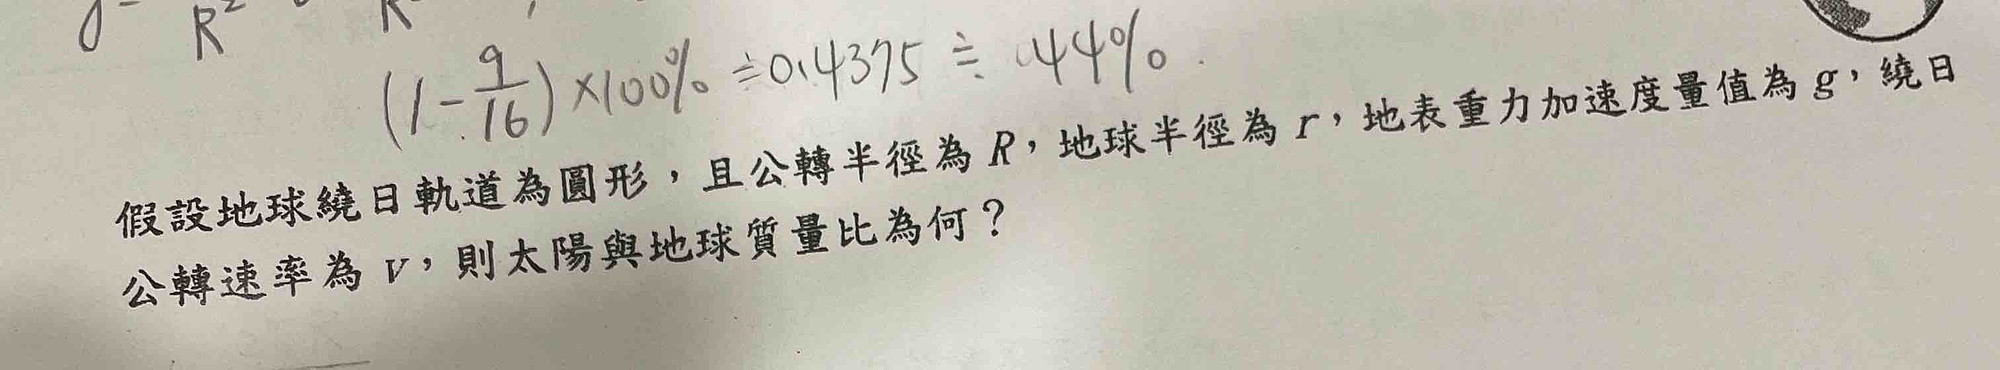 (1-9/16)×100% ≑0.4375 ≑ 44%
假設地球繞日軌道為圓形，且公轉半徑為 R，地球半徑為 r，地表重力加速度量值為 g，繞日
公轉速率為 v，則太陽與地球質量比為何？